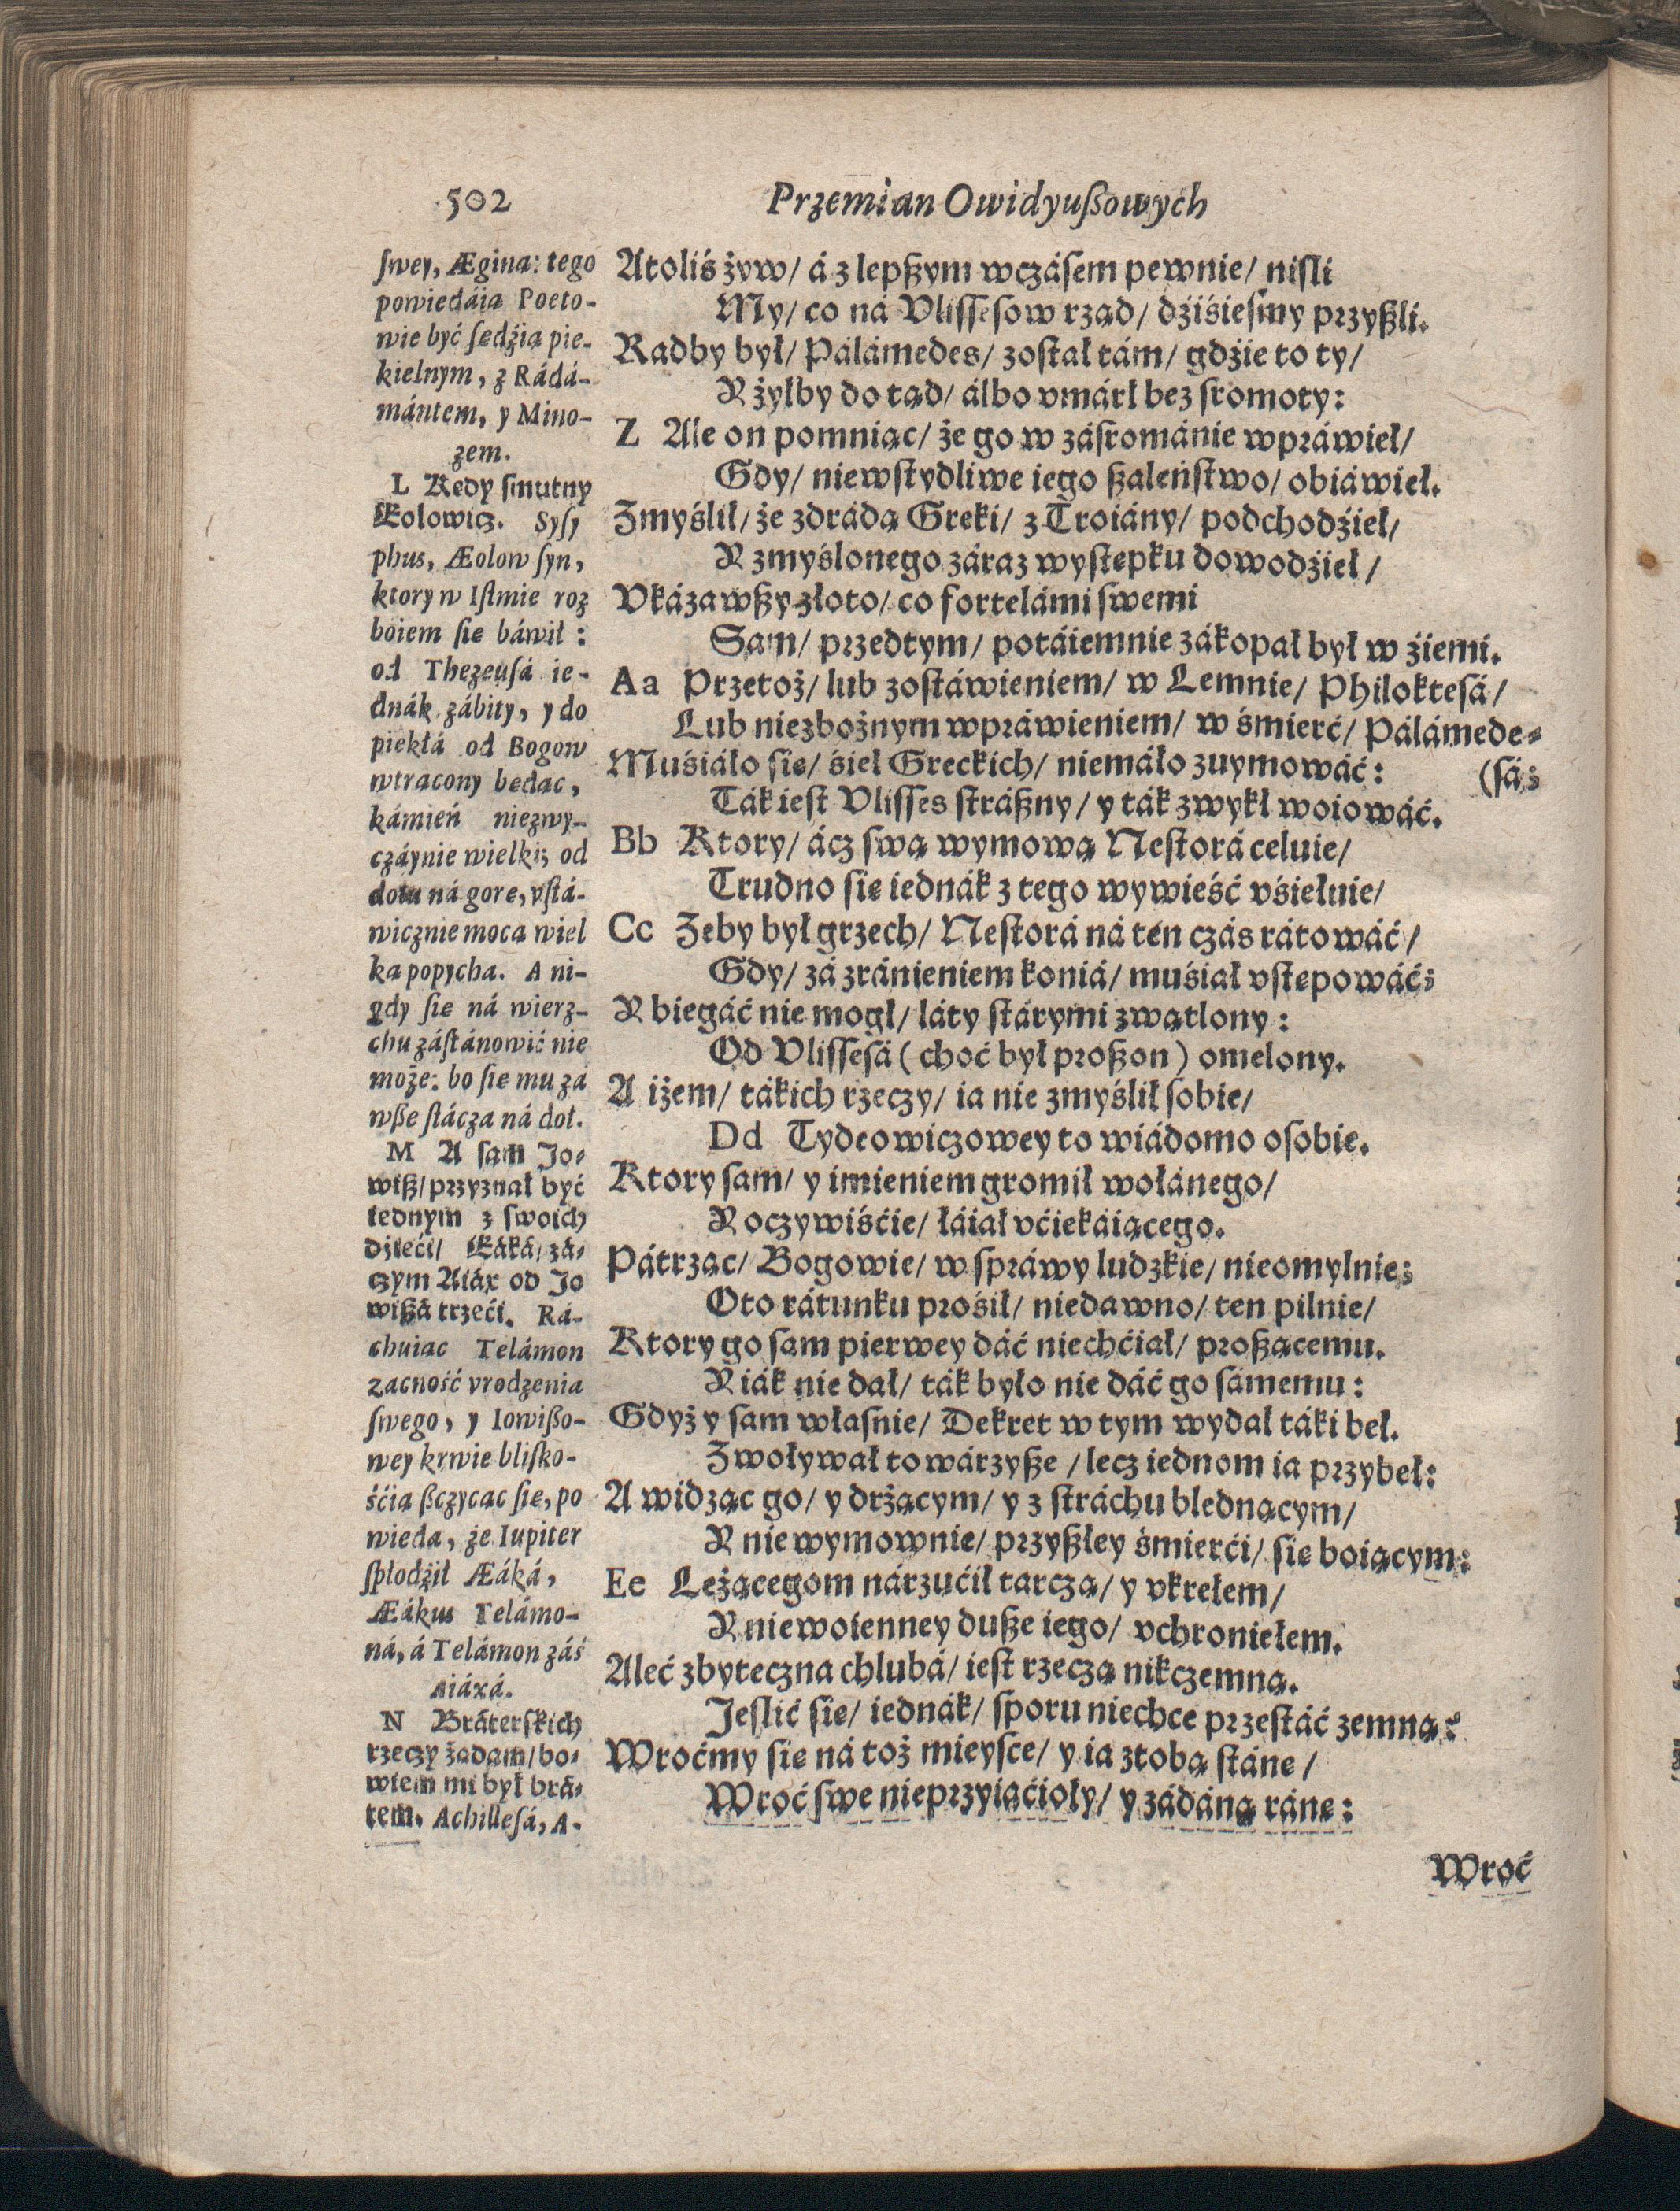 502
Przemian Owidyuſzowych
ſwey, Ægina: tego
powiedáią Poeto-
wie być ſędźią pie-
kielnym, z Rádá-
mántem, y Mino-
zem.
L Kędy ſmutny
Eolowicz. Syſy
phus, Æolow ſyn,
ktory w Iſtmie roz
boiem ſie báwił:
od Thezeuſá ie-
dnák zábity, y do
piekłá od Bogow
wtrącony będąc,
kámień niezwy-
czáynie wielki; od
dołu ná gorę, vſtá-
wicznie mocą wiel
ką popycha. A ni-
gdy ſie ná wierz-
chu záſtánowić nie
może: bo ſie mu zá
wſze ſtácza ná doł.
M A ſam Jo-
wiſz/ przyznał być
iednym z ſwoich
dźieći/ Eáká/ zá-
czym Aiáx od Jo
wiſzá trzeći. Rá-
chuiąc Telámon
zacność vrodzenia
ſwego, y Iowiſzo-
wey krwie bliſko-
śćią ſzczycąc ſie, po
wieda, że Iupiter
ſpłodźił Æáká,
Æákus Telámo-
ná, á Telámon záś
Aiáxá.
N Bráterſkich
rzeczy żądam/ bo-
wiem mi był brá-
tem. Achilleſá, A-
Atoliś żyw/ á z lepſzym wczáſem pewnie/ niſli
My/ co ná Vliſſeſow rząd/ dźiśieſmy przyſzli.
Radby był/ Pálámedes/ zoſtał tám/ gdźie to ty/
Y żyłby do tąd/ álbo vmárł bez ſromoty:
Z Ale on pomniąc/ że go w záſrománie wpráwieł/
Gdy/ niewſtydliwe iego ſzaleńſtwo/ obiáwieł.
Zmyślił/ że zdrádą Greki/ z Troiány/ podchodźieł/
Y zmyślonego záraz wyſtępku dowodźieł/
Vkázawſzy złoto/ co fortelámi ſwemi
Sam/ przedtym/ potáiemnie zákopał był w źiemi.
Aa Przetoż/ lub zoſtáwieniem/ w Lemnie/ Philokteſá/
Lub niezbożnym wpráwieniem/ w śmierć/ Pálámede-
Muśiáło ſie/ śieł Greckich/ niemáło zuymowáć: (ſá;
Ták ieſt Vliſſes ſtráſzny/ y ták zwykł woiowáć.
Bb Ktory/ ácz ſwą wymową Neſtorá celuie/
Trudno ſie iednák z tego wywieść vśiełuie/
Cc Zeby był grzech/ Neſtorá ná ten czás rátowáć/
Gdy/ zá zránieniem koniá/ muśiał vſtępowáć;
Y biegáć nie mogł/ láty ſtárymi zwątlony:
Od Vliſſeſá (choć był proſzon) omelony.
A iżem/ tákich rzeczy/ ia nie zmyślił ſobie/
Dd Tydeowiczowey to wiádomo oſobie.
Ktory ſam/ y imieniem gromił wołánego/
Y oczywiśćie/ łáiał vćiekáiącego.
Pátrząc/ Bogowie/ w ſpráwy ludzkie/ nieomylnie;
Oto rátunku prośił/ niedawno/ ten pilnie/
Ktory go ſam pierwey dáć niechćiał/ proſzącemu.
Y iák nie dał/ ták było nie dáć go ſámemu:
Gdyż y ſam właſnie/ Dekret w tym wydał táki beł.
Zwoływał towárzyſze/ lecz iednom ia przybeł:
A widząc go/ y drżącym/ y z ſtráchu blednącym/
Y niewymownie/ przyſzłey śmierći/ ſie boiącym:
Ee Leżącegom nárzućił tarczą/ y vkrełem/
Y niewoienney duſze iego/ vchroniełem.
Aleć zbyteczna chlubá/ ieſt rzeczą nikczemną.
Jeſlić ſie/ iednák/ ſporu niechce przeſtáć zemną:
Wroćmy ſie ná toż mieyſce/ y ia ztobą ſtánę/
Wroć ſwe nieprzyiaćioły/ y zádáną ránę:
Wroć